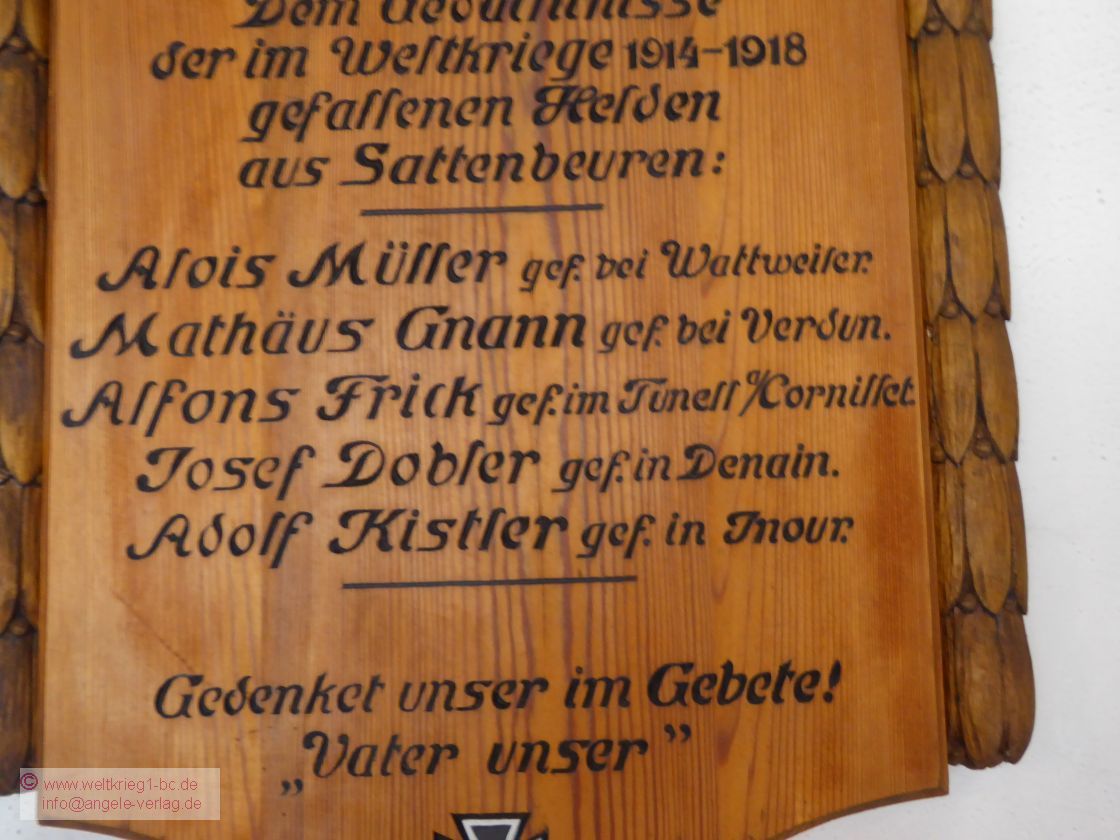 Dem Gedächtnisse
der im Weltkriege 1914-1918
gefallenen Helden
aus Sattenbeuren:
Alois Müller gef. bei Wattweiler.
Mathäus Gnann gef. bei Verdun.
Alfons Frick gef. im Tunell a/Cornillet.
Josef Dobler gef. in Denain.
Adolf Kistler gef. in Inour.
Gedenket unser im Gebete!
„Vater unser”
© www.weltkrieg1-bc.de
info@angele-verlag.de